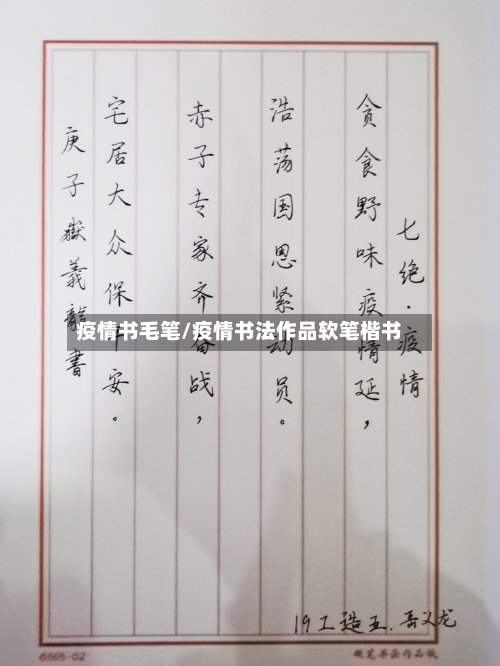 七绝·疫情
贪食野味疫情延，
浩荡国恩紧动员。
赤子专家齐奋战，
宅居大众保平安。
庚子嶽義龍書
疫情书毛笔/疫情书法作品软笔楷书
19工造五.岳义龙
6565-02
硬笔书法作品纸